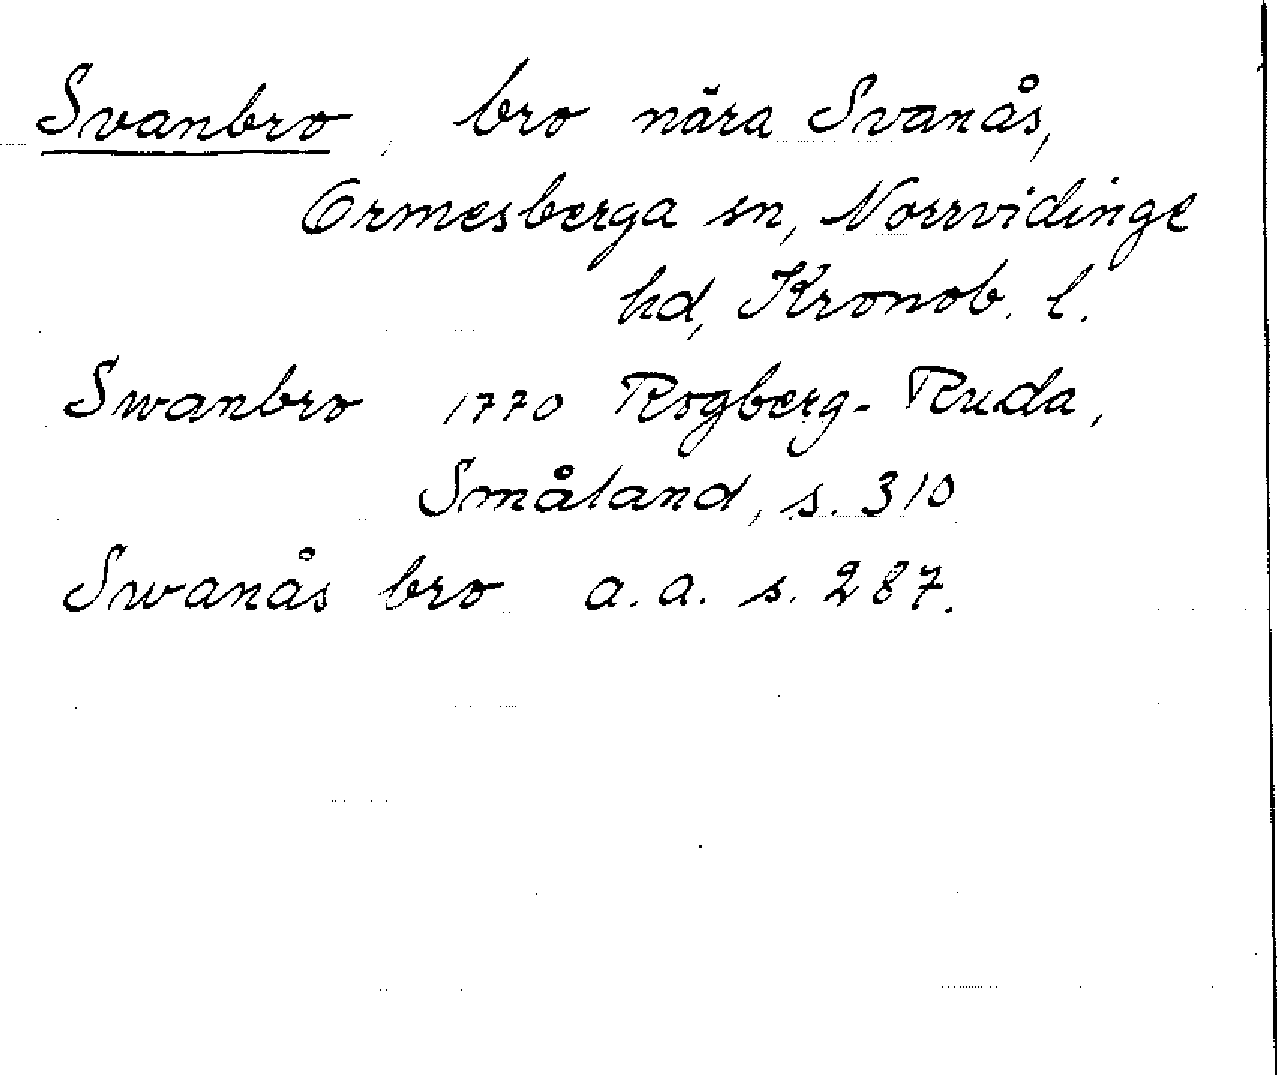 Svanbro, bro nära Svanås,
Ormesberga sn, Norrvidinge
hd, Kronob. l.
Swanbro 1770 Rogberg-Ruda,
Småland, s. 310
Swanås bro a.a. s. 287.